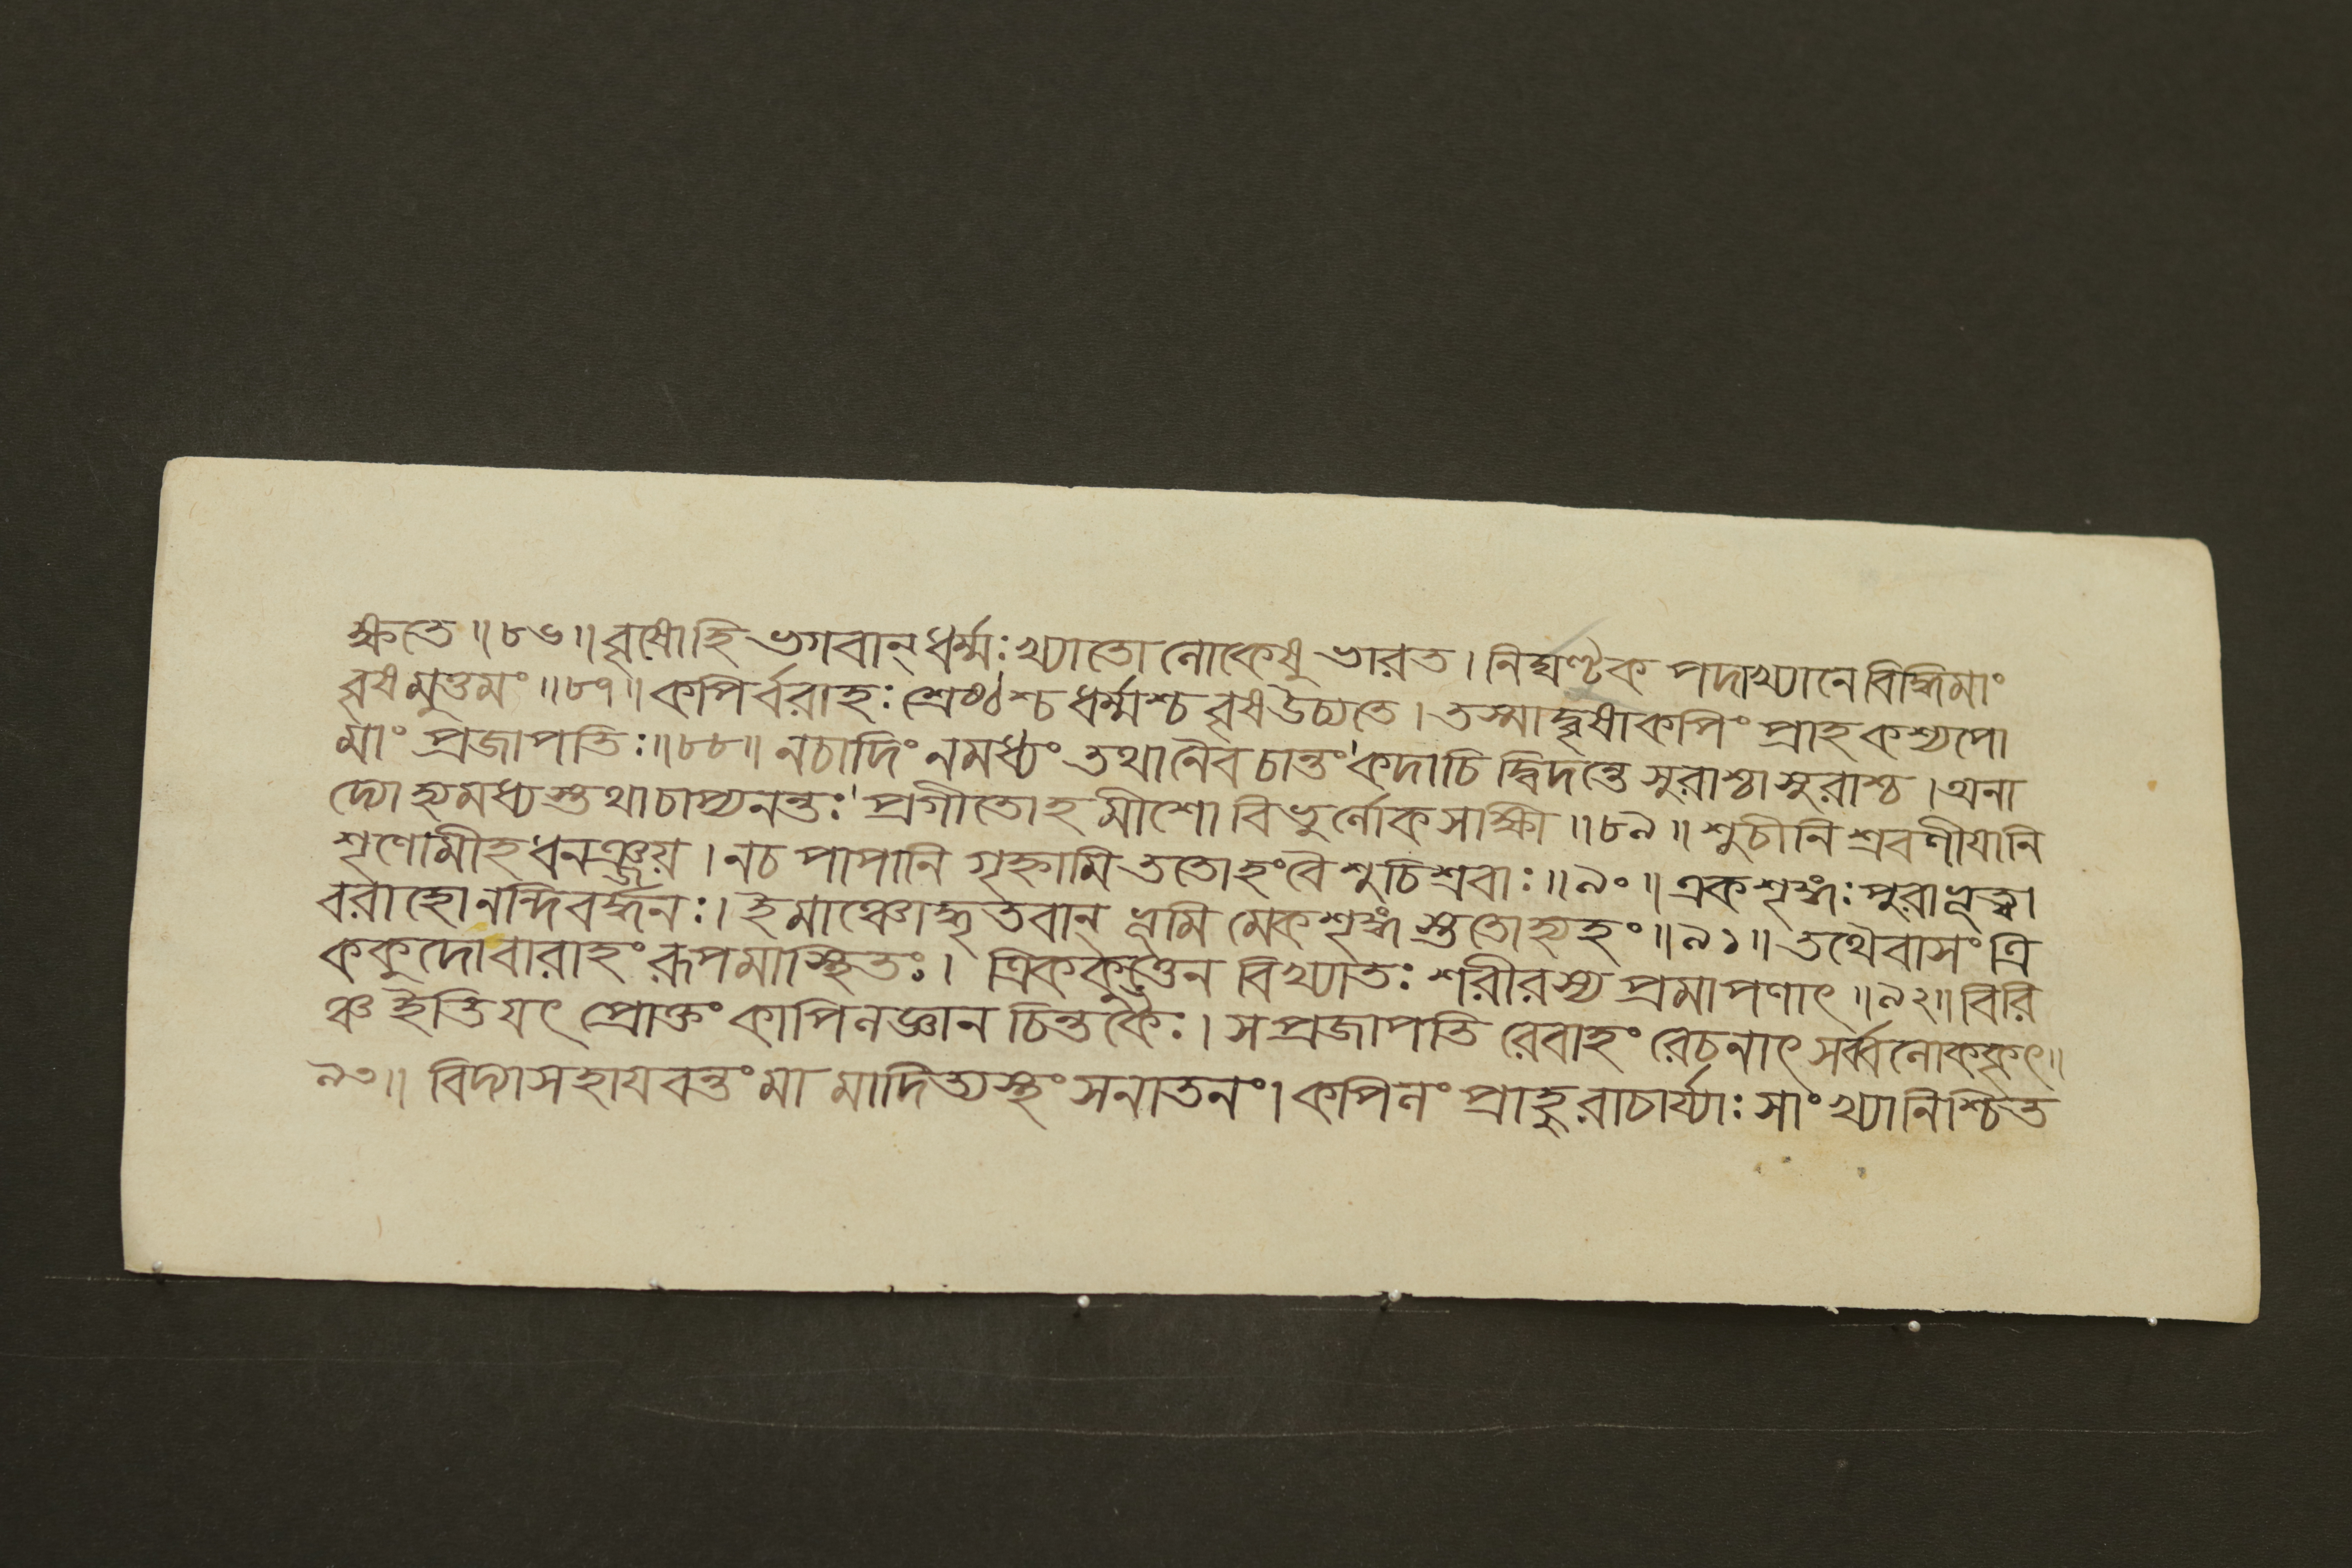 ক্ষতে ॥৮৬॥ বৃষোহি ভগবান্ ধর্ম্মঃ খ্যাতো লোকেষু ভারত । নিঘণ্টক পদাখ্যানে বিদ্ধিমাং
বৃষমুত্তমং ॥৮৭॥ কপির্বরাহঃ শ্রেষ্ঠশ্চ ধর্ম্মশ্চ বৃষউচ্যতে । তস্মাদ্বৃষাকপিং প্রাহ কশ্যপো
মাং প্রজাপতিঃ ॥৮৮॥ নচাদিং নমধ্যং তথানৈব চান্তং কদাচি দ্বিদন্তে সুরাশ্চাসুরাশ্চ । অনা
দ্যোহ্যমধ্যস্তথাচাপ্যনন্তঃ প্রগীতোহ মীশো বিভুর্লোকসাক্ষী ॥৮৯॥ শুচীনি শ্রবণীয়ানি
শৃণোমীহ ধনঞ্জয় । নচ পাপানি গৃহ্নামি ততোহংবৈ শুচিশ্রবাঃ ॥৯০॥ একশৃঙ্গঃ পুরাভূত্বা
বরাহোনন্দিবর্দ্ধনঃ । ইমাঞ্চোদ্ধৃতবান্ ভূমি মেকশৃঙ্গ স্ততোহ্যহং ॥৯১॥ তথৈবাসং ত্রি
ককুদোবারাহং রূপমাস্থিতঃ । ত্রিককুত্তেন বিখ্যাতঃ শরীরস্য প্রমাপণাৎ ॥৯২॥ বিরি
ঞ্চ ইতি যৎ প্রোক্তং কাপিলজ্ঞান চিন্তকৈঃ । সপ্রজাপতি রেবাহং রেচনাৎ সর্ব্বলোককৃৎ ॥
৯৩॥ বিদ্যাসহায়বন্তং মা মাদিত্যস্থং সনাতনং । কপিলং প্রাহুরাচার্য্যাঃ সাংখ্যানিশ্চিত